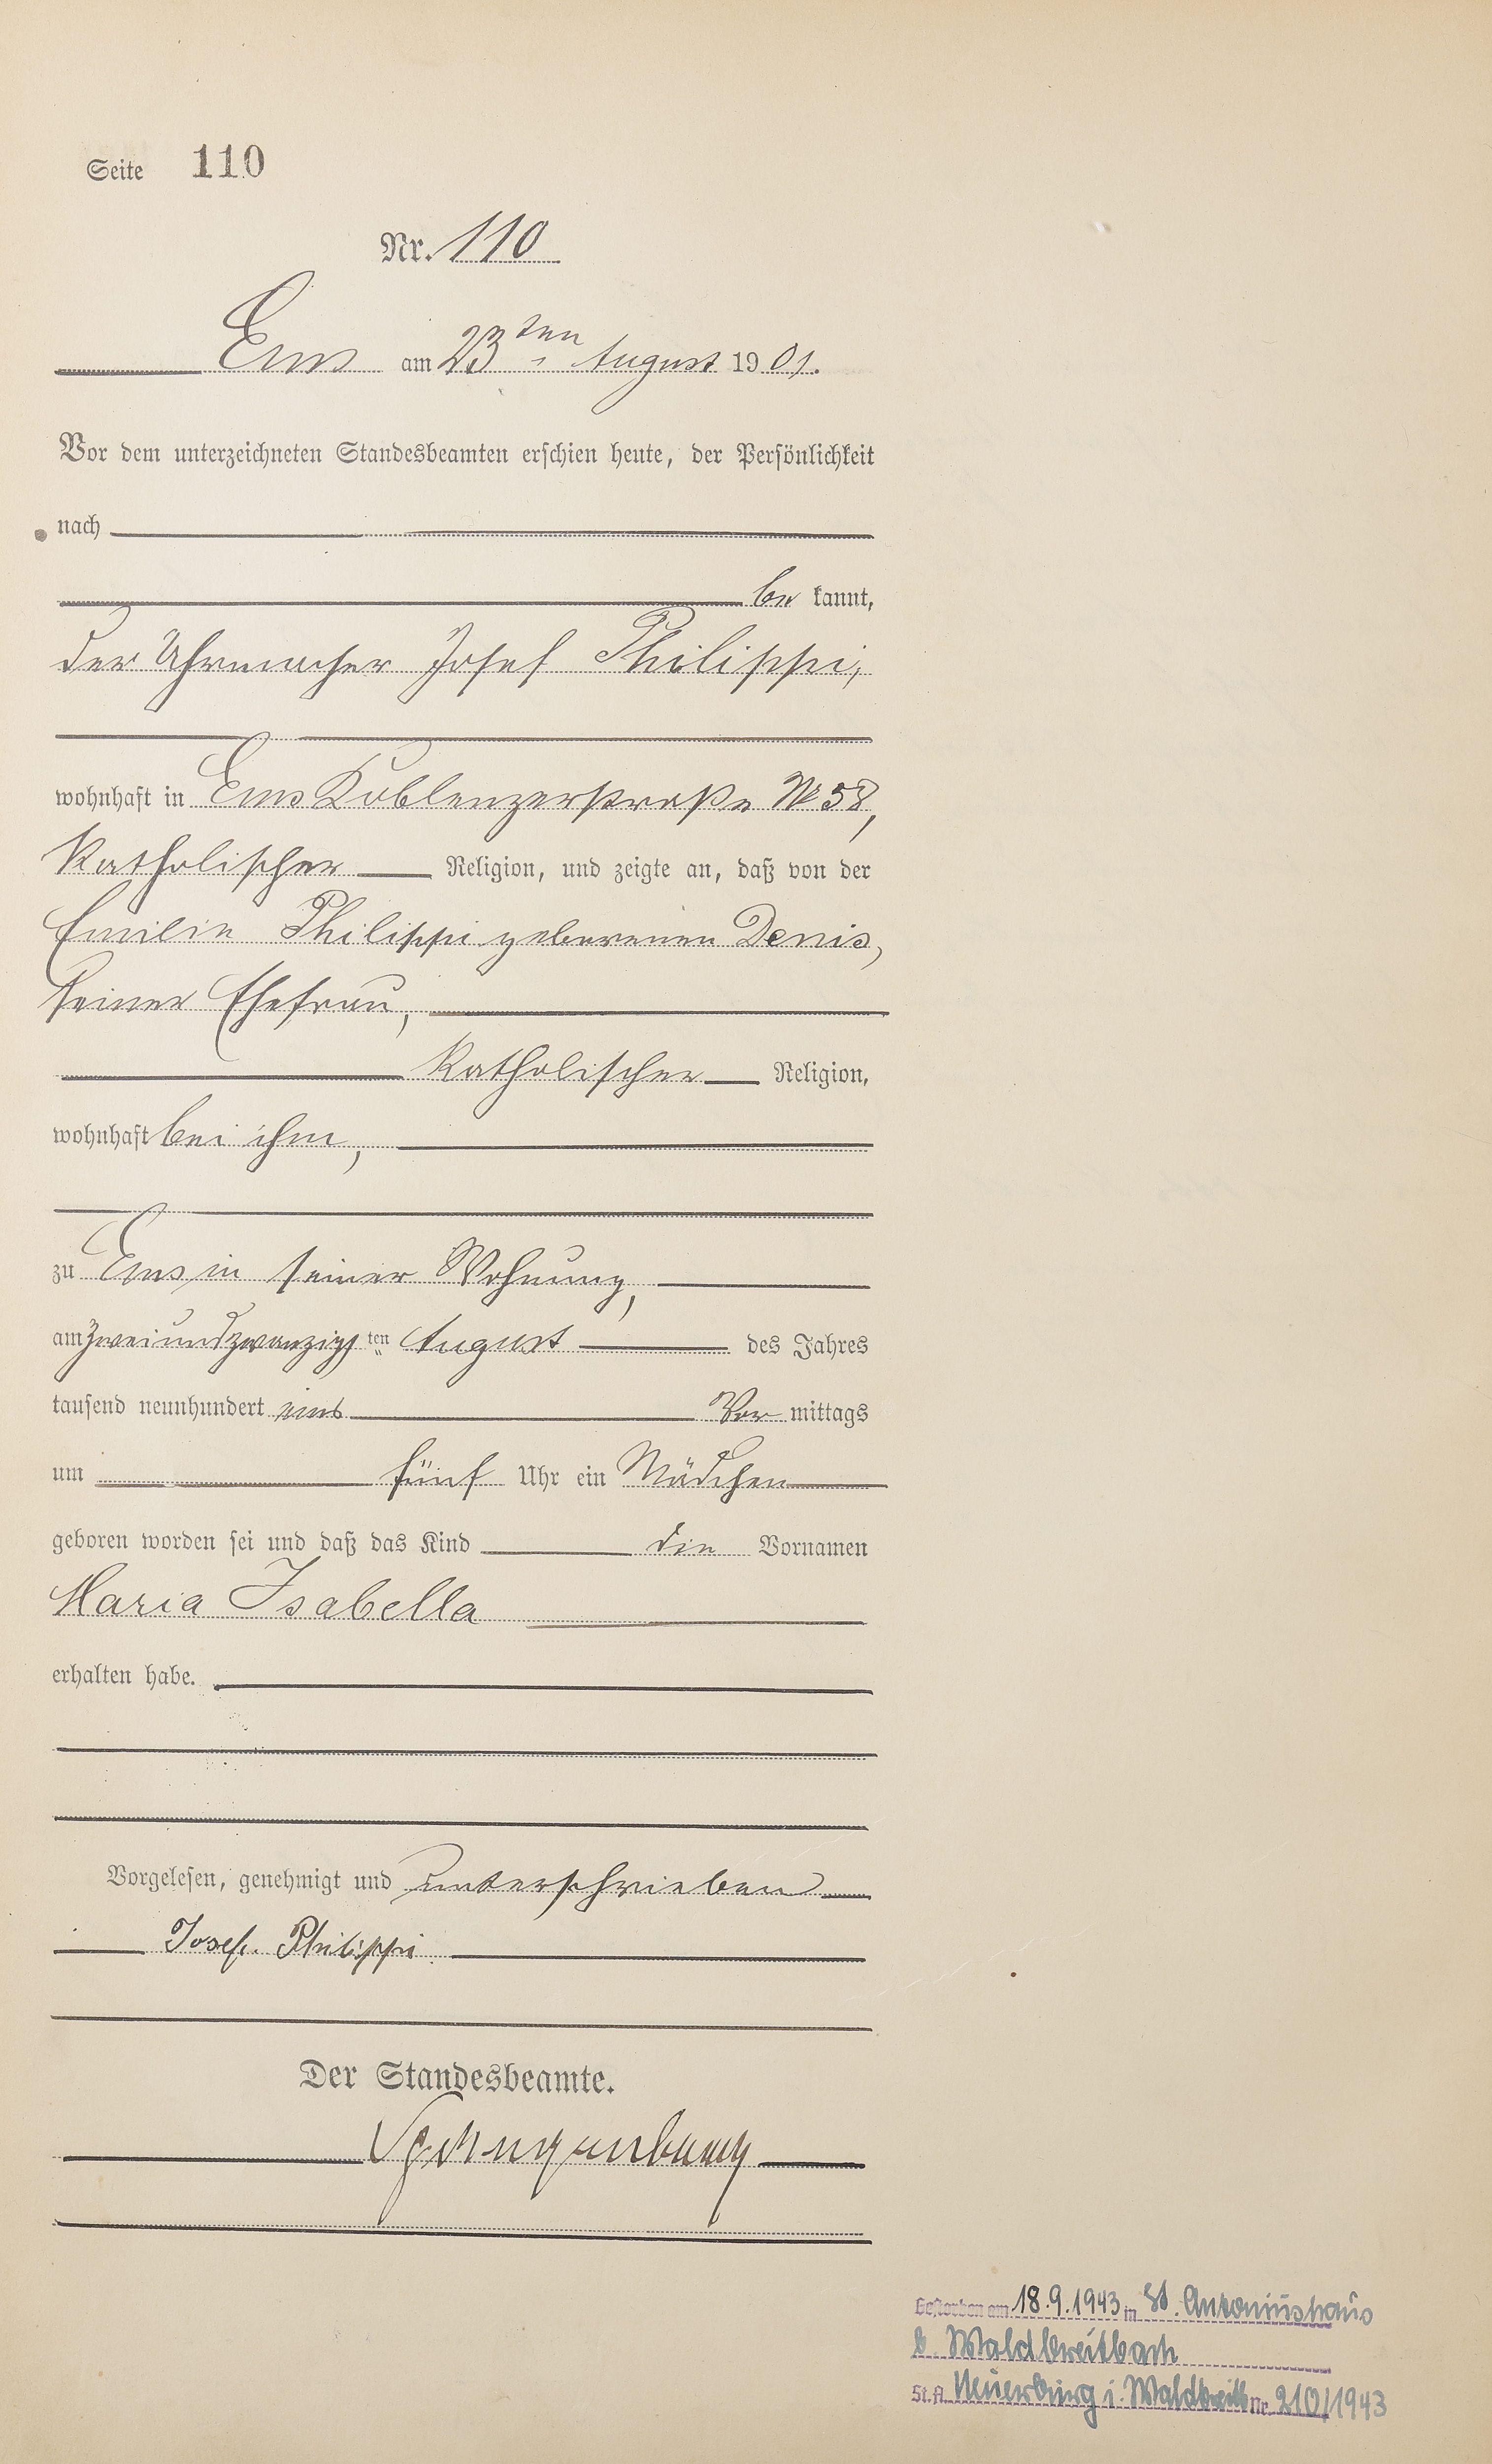 Seite 110
Nr. 110
Ems am 23ten August 1901.
Vor dem unterzeichneten Standesbeamten erschien heute, der Persönlichkeit
nach
be kannt,
der Uhrmacher Josef Philippi,
wohnhaft in Ems Koblenzerstraße № 58,
katholischer Religion, und zeigte an, daß von der
Emilie Philippi geborenen Denis,
seiner Ehefrau,
katholischer Religion,
wohnhaft bei ihm,
zu Ems in seiner Wohnung,
am zweiundzwanzigsten August des Jahres
tausend neunhundert eins Vor mittags
um fünf Uhr ein Mädchen
geboren worden sei und daß das Kind die Vornamen
Maria Isabella
erhalten habe.
Vorgelesen, genehmigt und unterschrieben
Josef. Philippi
Der Standesbeamte.
Gestorben am 18.9.1943 in St. Antoniushaus
b. Waldbreitbach
St.A. Neuerburg i. Waldbreitb Nr. 210/1943